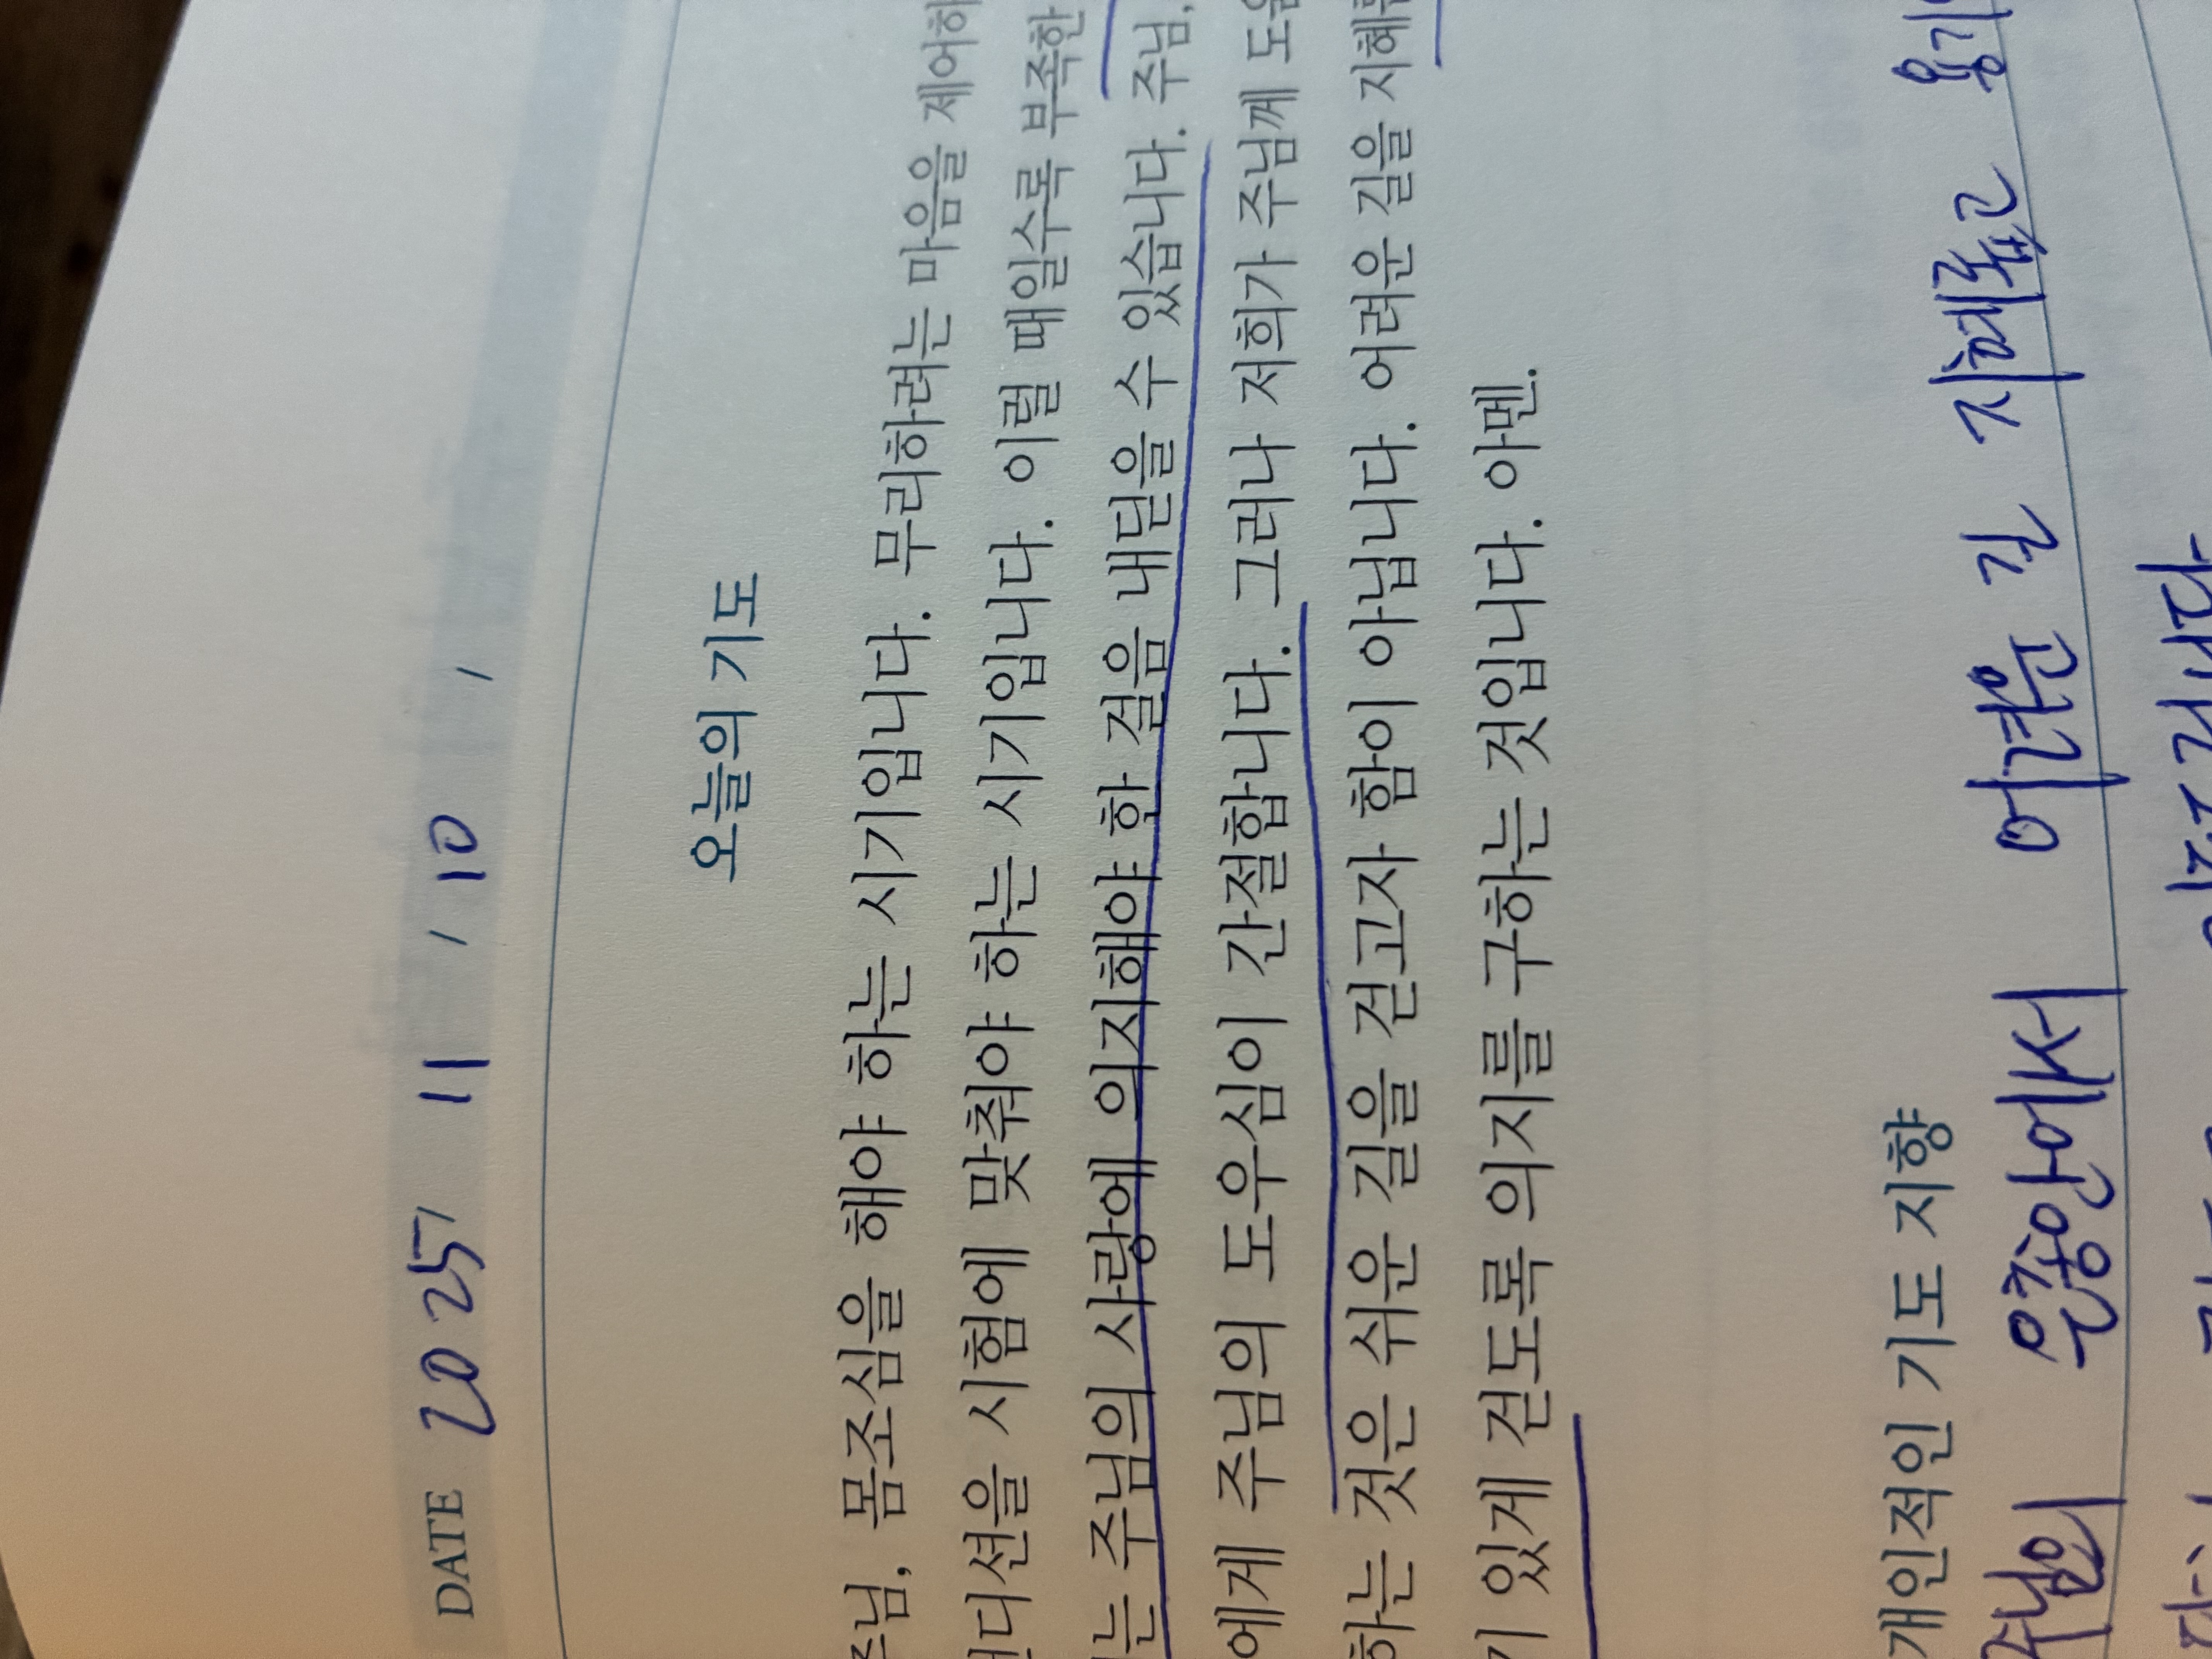 DATE 2025 / 11 / 10 /
오늘의 기도
주님, 몸조심을 해야 하는 시기입니다. 무리하려는 마음을 제어하
컨디션을 시험에 맞춰야 하는 시기입니다. 이럴 때일수록 부족한
는 주님의 사랑에 의지해야 한 걸음 내딛을 수 있습니다. 주님,
에게 주님의 도우심이 간절합니다. 그러나 저희가 주님께 도움
하는 것은 쉬운 길을 걷고자 함이 아닙니다. 어려운 길을 지혜
기 있게 걷도록 의지를 구하는 것입니다. 아멘.
개인적인 기도 지향
주님의 은총안에서 어려운 길 지혜롭고 용기